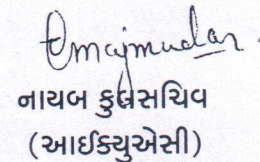 Cmajmudar
નાયબ કુલસચિવ
(આઈક્યુએસી)